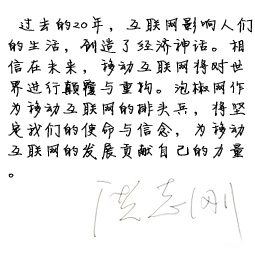 过去的20年，互联网影响人们
的生活，创造了经济神话。相
信在未来，移动互联网将对世
界进行颠覆与重构。泡椒网作
为移动互联网的排头兵，将坚
定我们的使命与信念，为移动
互联网的发展贡献自己的力量
。
陈志刚